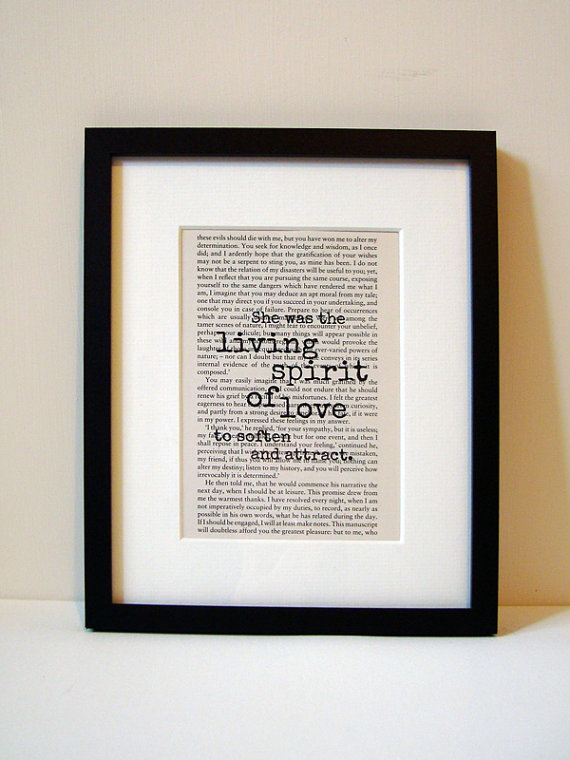 She was the
living
spirit
of love
to soften
and attract.
these evils should die with me, but you have won me to alter my
determination. You seek for knowledge and wisdom, as I once
did; and I ardently hope that the gratification of your wishes
may not be a serpent to sting you, as mine has been. I do not
know that the relation of my disasters will be useful to you; yet,
when I reflect that you are pursuing the same course, exposing
yourself to the same dangers which have rendered me what I
am, I imagine that you may deduce an apt moral from my tale;
one that may direct you if you succeed in your undertaking, and
console you in case of failure. Prepare to hear of occurrences
which are usually among the
tamer scenes of nature, I might fear to encounter your unbelief,
perhaps your ridicule; but many things will appear possible in
these wild would provoke the
laughter ever-varied powers of
nature; – nor can I doubt but that my conveys in its series
internal evidence of the of the events of which it is
composed.'
You may easily imagine that I was much gratified by the
offered communication, I could not endure that he should
renew his grief by I felt the greatest
eagerness to hear curiosity,
and partly from a strong desire
if it were in my power. I expressed these feelings in my answer.
'I thank you,' he replied, 'for your sympathy, but it is useless;
my fate but for one event, and then I
shall repose in peace. I understand your feeling,' continued he,
perceiving that I mistaken,
my friend, if thus you will allow me to name you; nothing can
alter my destiny; listen to my history, and you will perceive how
irrevocably it is determined.'
He then told me, that he would commence his narrative the
next day, when I should be at leisure. This promise drew from
me the warmest thanks. I have resolved every night, when I am
not imperatively occupied by my duties, to record, as nearly as
possible in his own words, what he has related during the day.
If I should be engaged, I will at least make notes. This manuscript
will doubtless afford you the greatest pleasure: but to me, who